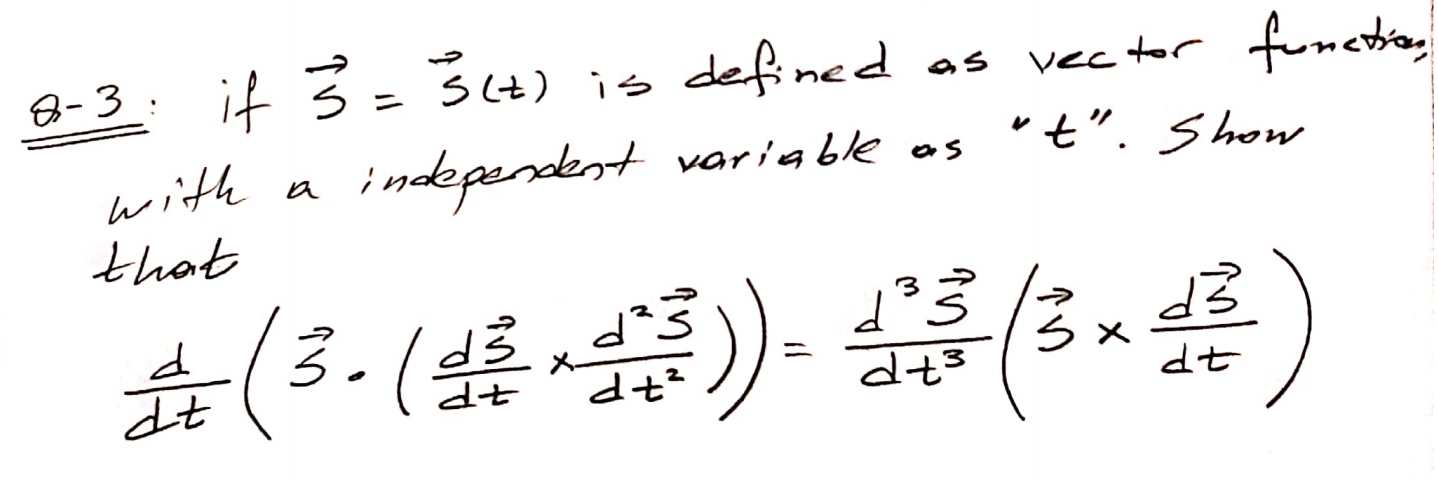 Q-3: if \vec{S} = \vec{S}(t) is defined as vector function,
with a independent variable as "t". Show
that
\frac{d}{dt}\left(\vec{S} \cdot \left(\frac{d\vec{S}}{dt} \times \frac{d^2\vec{S}}{dt^2}\right)\right) = \frac{d^3\vec{S}}{dt^3}\left(\vec{S} \times \frac{d\vec{S}}{dt}\right)